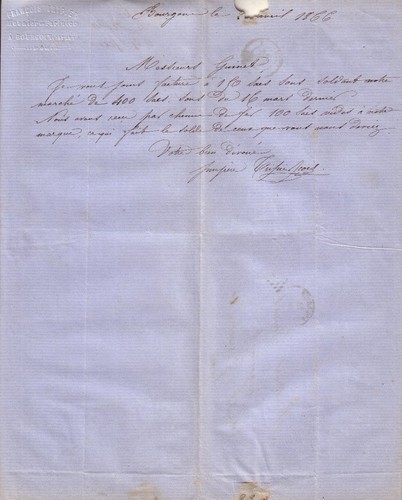 Bourgoin le avril 1866
Messieurs Guinet
Je vous joins facture à 150 sacs sons soldant notre
marché de 400 sacs sons du 16 mars dernier
Nous avons reçu par chemin de fer 100 sacs vides à notre
marque, ce qui fait le solde de ceux que vous nous deviez
Votre bien dévoué